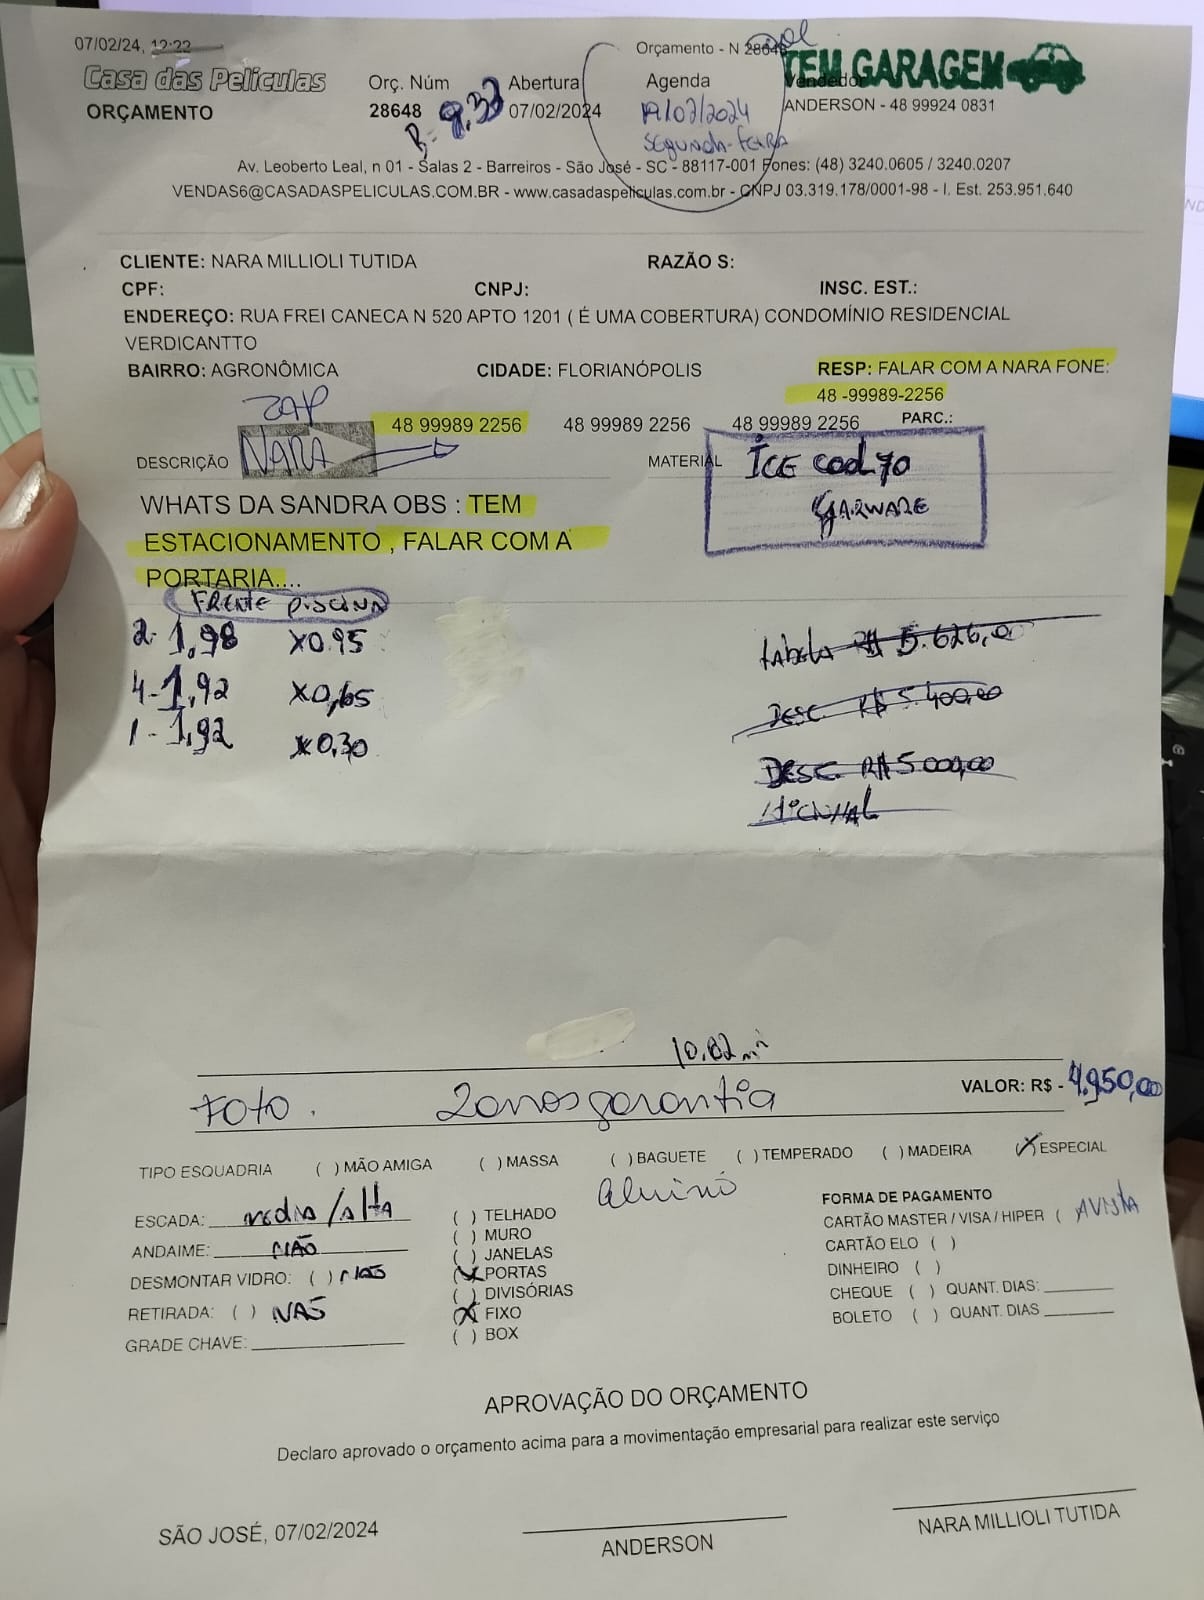 07/02/24, 12:22
Orçamento - N 28648
TEM GARAGEM
Casa das Películas
ORÇAMENTO
Orç. Núm
28648
Abertura
07/02/2024
Agenda
19/02/2024
SEGUNDA-FEIRA
Vendedor
ANDERSON - 48 99924 0831
Av. Leoberto Leal, n 01 - Salas 2 - Barreiros - São José - SC - 88117-001 Fones: (48) 3240.0605 / 3240.0207
VENDAS6@CASADASPELICULAS.COM.BR - www.casadaspeliculas.com.br - CNPJ 03.319.178/0001-98 - I. Est. 253.951.640
CLIENTE: NARA MILLIOLI TUTIDA RAZÃO S:
CPF: CNPJ: INSC. EST.:
ENDEREÇO: RUA FREI CANECA N 520 APTO 1201 ( É UMA COBERTURA) CONDOMÍNIO RESIDENCIAL
VERDICANTTO
BAIRRO: AGRONÔMICA CIDADE: FLORIANÓPOLIS RESP: FALAR COM A NARA FONE:
48 -99989-2256
ZAP
48 99989 2256 48 99989 2256 48 99989 2256 PARC.:
DESCRIÇÃO NARA MATERIAL ICE cod 70
GARWARE
WHATS DA SANDRA OBS : TEM
ESTACIONAMENTO , FALAR COM A
PORTARIA....
FRENTE PISCINA
2- 1,98 X0.95
4- 1,92 X0,65
1 - 1,92 X0,30
tabela R$ 5.626,00
DESC. R$ 5.400,00
DESC. R$ 5.000,00
10.82 m²
VALOR: R$ - 4.950,00
FOTO. 2 anos garantia
TIPO ESQUADRIA ( ) MÃO AMIGA ( ) MASSA ( ) BAGUETE ( ) TEMPERADO ( ) MADEIRA (X) ESPECIAL
ESCADA: media / alta
ANDAIME: NÃO
DESMONTAR VIDRO: ( ) NÃO
RETIRADA: ( ) NÃO
GRADE CHAVE:
( ) TELHADO
( ) MURO
( ) JANELAS
(X) PORTAS
( ) DIVISÓRIAS
(X) FIXO
( ) BOX
FORMA DE PAGAMENTO
CARTÃO MASTER / VISA / HIPER ( AVISTA
CARTÃO ELO ( )
DINHEIRO ( )
CHEQUE ( ) QUANT. DIAS:
BOLETO ( ) QUANT. DIAS
APROVAÇÃO DO ORÇAMENTO
Declaro aprovado o orçamento acima para a movimentação empresarial para realizar este serviço
SÃO JOSÉ, 07/02/2024
ANDERSON
NARA MILLIOLI TUTIDA